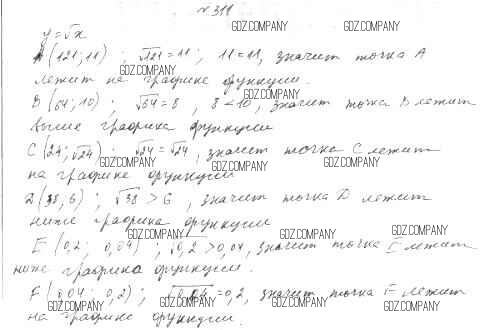 № 311
y=√x
A(121; 11) ; √121 = 11 ; 11 = 11, значит точка A
лежит на графике функции.
B(64; 10) ; √64 = 8 , 8 < 10, значит точка B лежит
выше графика функции
C(24; √24) ; √24 = √24, значит точка C лежит
на графике функции
D(38, 6) ; √38 > 6 , значит точка D лежит
ниже графика функции
E(0,2; 0,04) ; √0,2 > 0,04, значит точка E лежит
ниже графика функции.
F(0,04; 0,2) ; √0,04 = 0,2, значит точка F лежит
на графике функции.
GDZ.COMPANY GDZ.COMPANY
GDZ.COMPANY
GDZ.COMPANY
GDZ.COMPANY GDZ.COMPANY
GDZ.COMPANY GDZ.COMPANY
GDZ.COMPANY GDZ.COMPANY GDZ.COMPANY GDZ.COMPANY